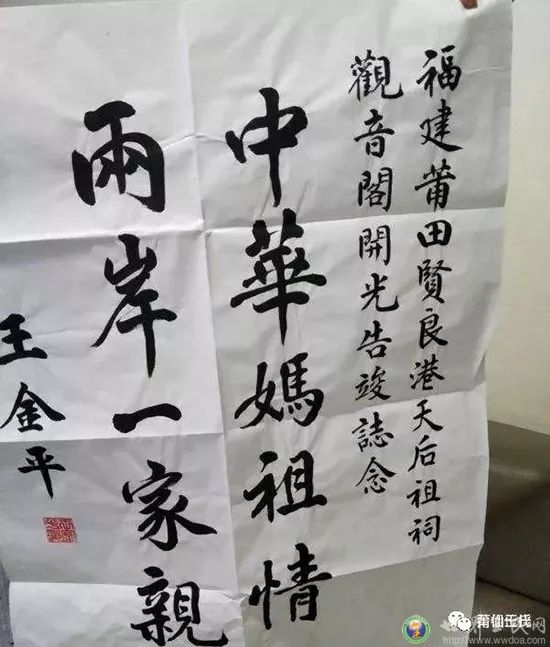 福建莆田賢良港天后祖祠
觀音閣開光告竣誌念
中華媽祖情
兩岸一家親
王金平
莆仙王氏
世界王氏网
http://www.wwdoa.com